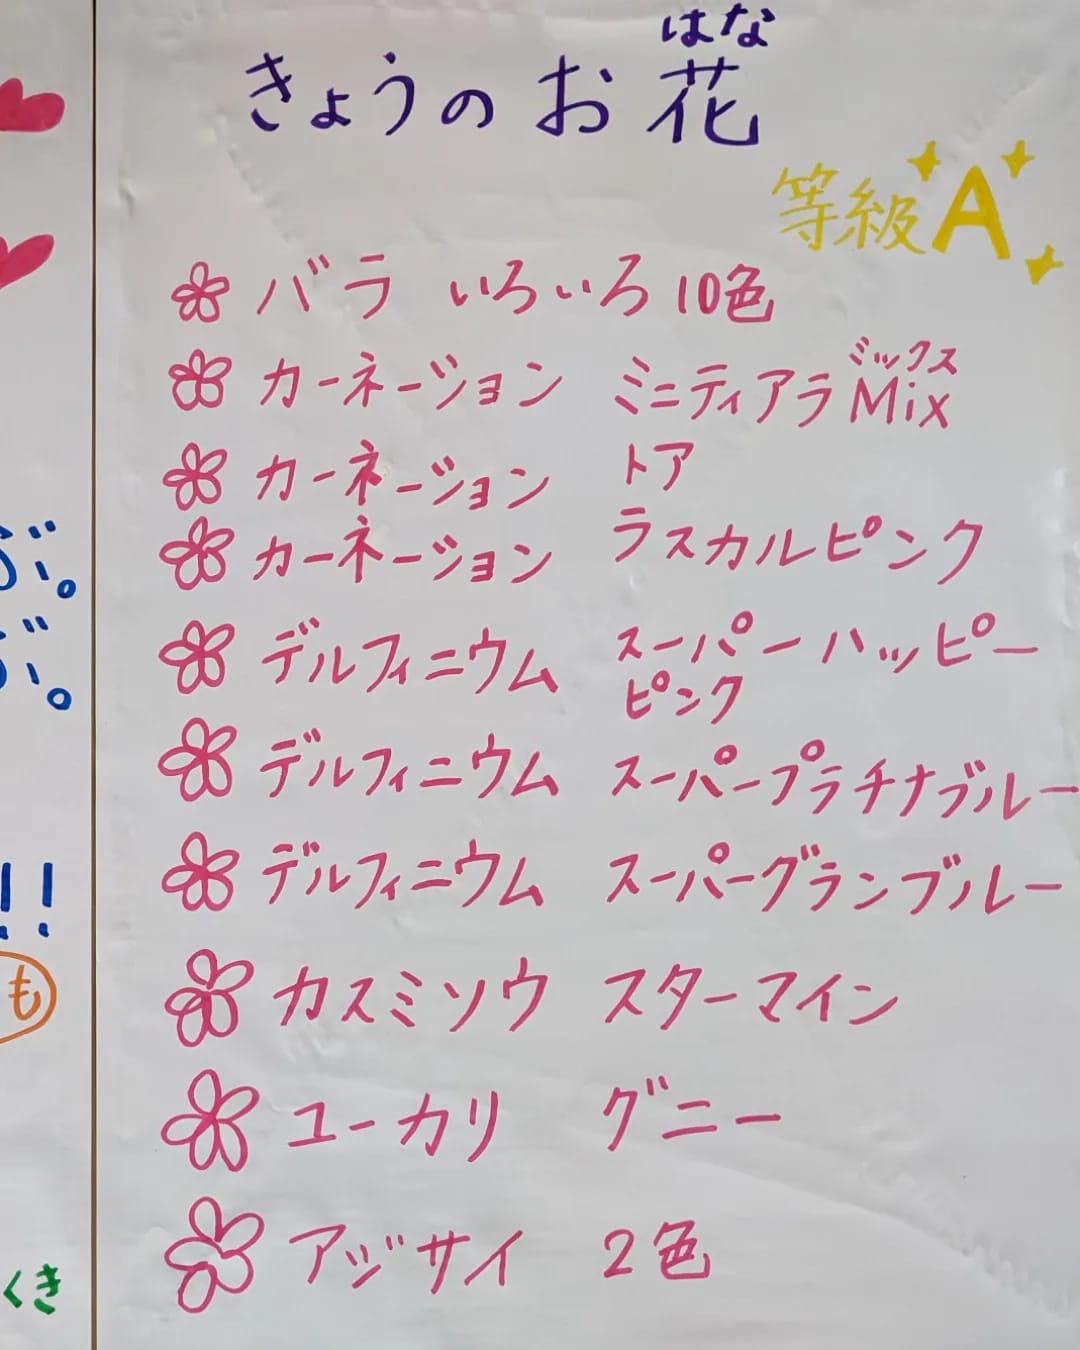 はな
きょうのお花
等級A
バラ いろいろ10色
ミックス
カーネーション ミニティアラMix
カーネーション トア
カーネーション ラスカルピンク
デルフィニウム スーパーハッピー
ピンク
デルフィニウム スーパープラチナブルー
デルフィニウム スーパーグランブルー
カスミソウ スターマイン
ユーカリ グニー
アジサイ 2色
ぶ。
ぶ。
!!
も
くき